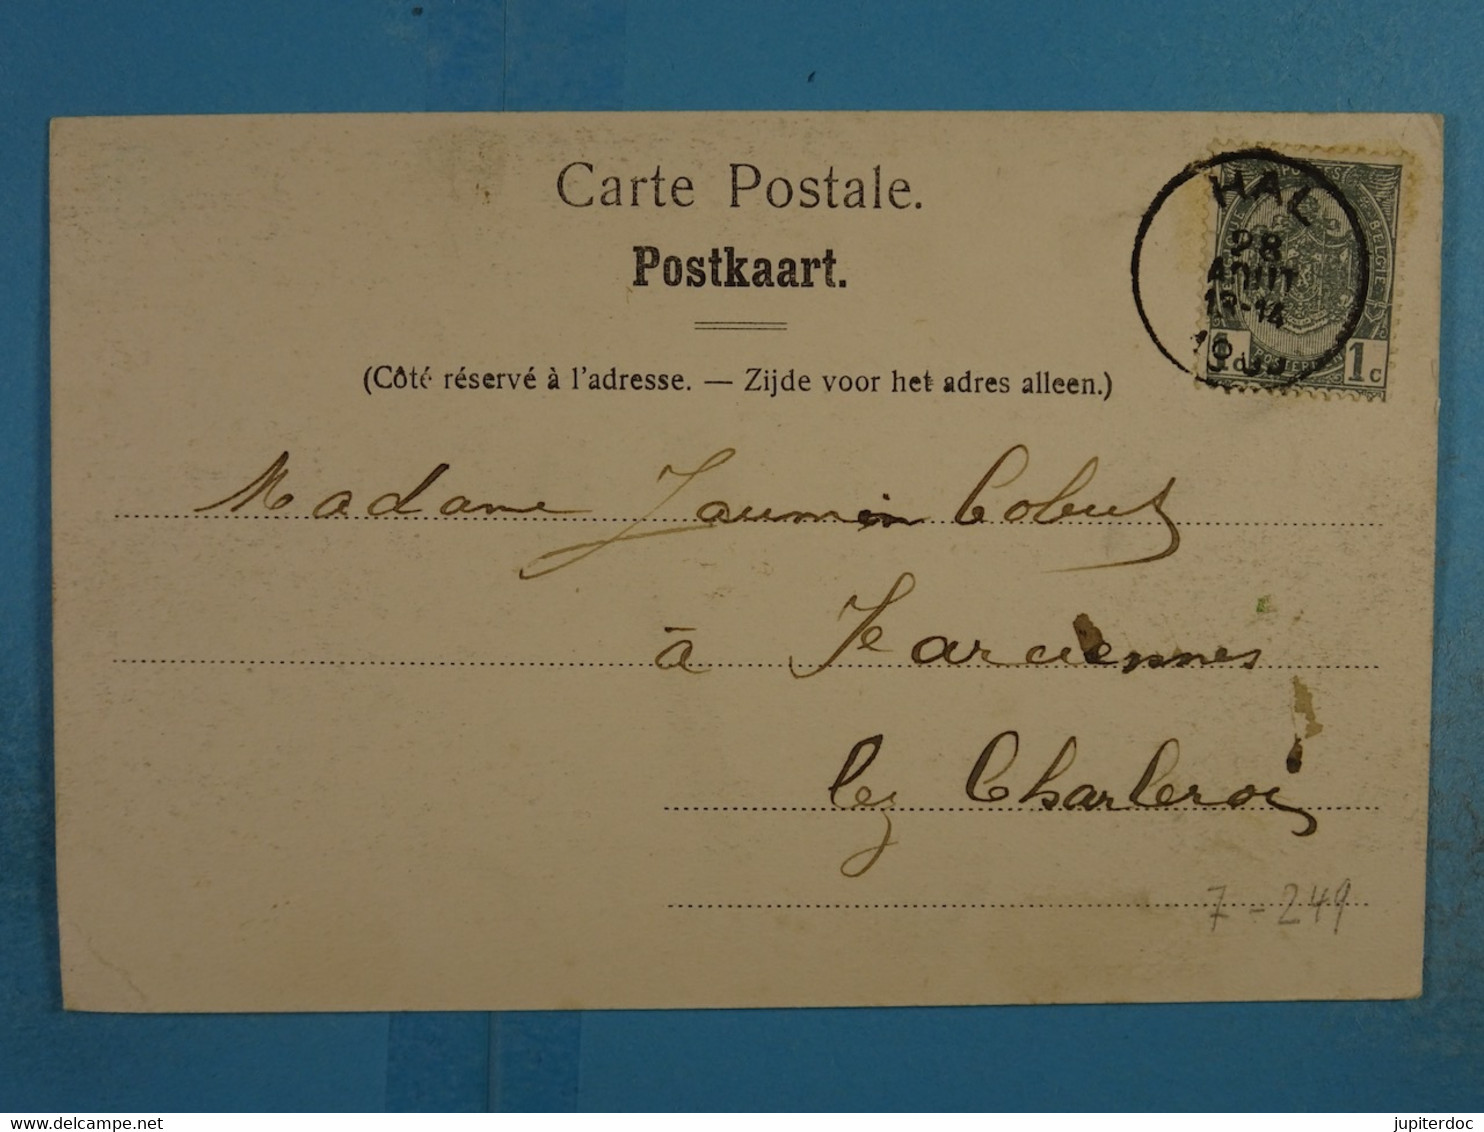 Carte Postale.
Postkaart.
(Côté réservé à l'adresse. — Zijde voor het adres alleen.)
HAL
28
AOUT
13-14
BELGIE
1c
Madame Jaumin Cobut
à Farciennes
lez Charleroi
7-249
jupiterdoc